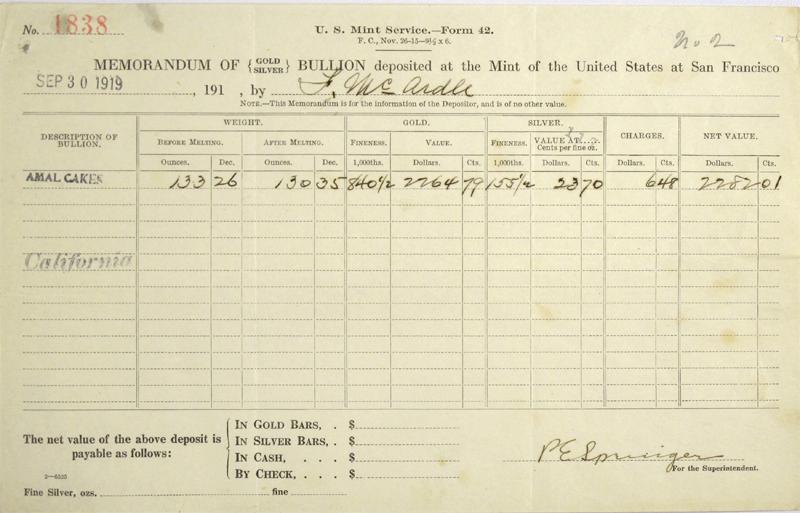 No. 1838
U. S. Mint Service.—Form 42.
F. C., Nov. 26-15—9½ x 6.
No 2
MEMORANDUM OF {GOLD SILVER} BULLION deposited at the Mint of the United States at San Francisco
SEP 30 1919, 191 , by F. McArdle
NOTE.—This Memorandum is for the information of the Depositor, and is of no other value.
DESCRIPTION OF BULLION. WEIGHT. GOLD. SILVER. CHARGES. NET VALUE.
BEFORE MELTING. AFTER MELTING. FINENESS. VALUE. FINENESS. VALUE AT Cents per fine oz.
Ounces. Dec. Ounces. Dec. 1,000ths. Dollars. Cts. 1,000ths. Dollars. Cts. Dollars. Cts. Dollars. Cts.
AMAL CAKES 133 26 130 35 840½ 2264 79 155½ 23 70 6 48 2282 01
California
The net value of the above deposit is payable as follows:
IN GOLD BARS, . $
IN SILVER BARS, . $
IN CASH, . . . $
BY CHECK, . . . $
P E Springer
For the Superintendent.
2—6535
Fine Silver, ozs. fine